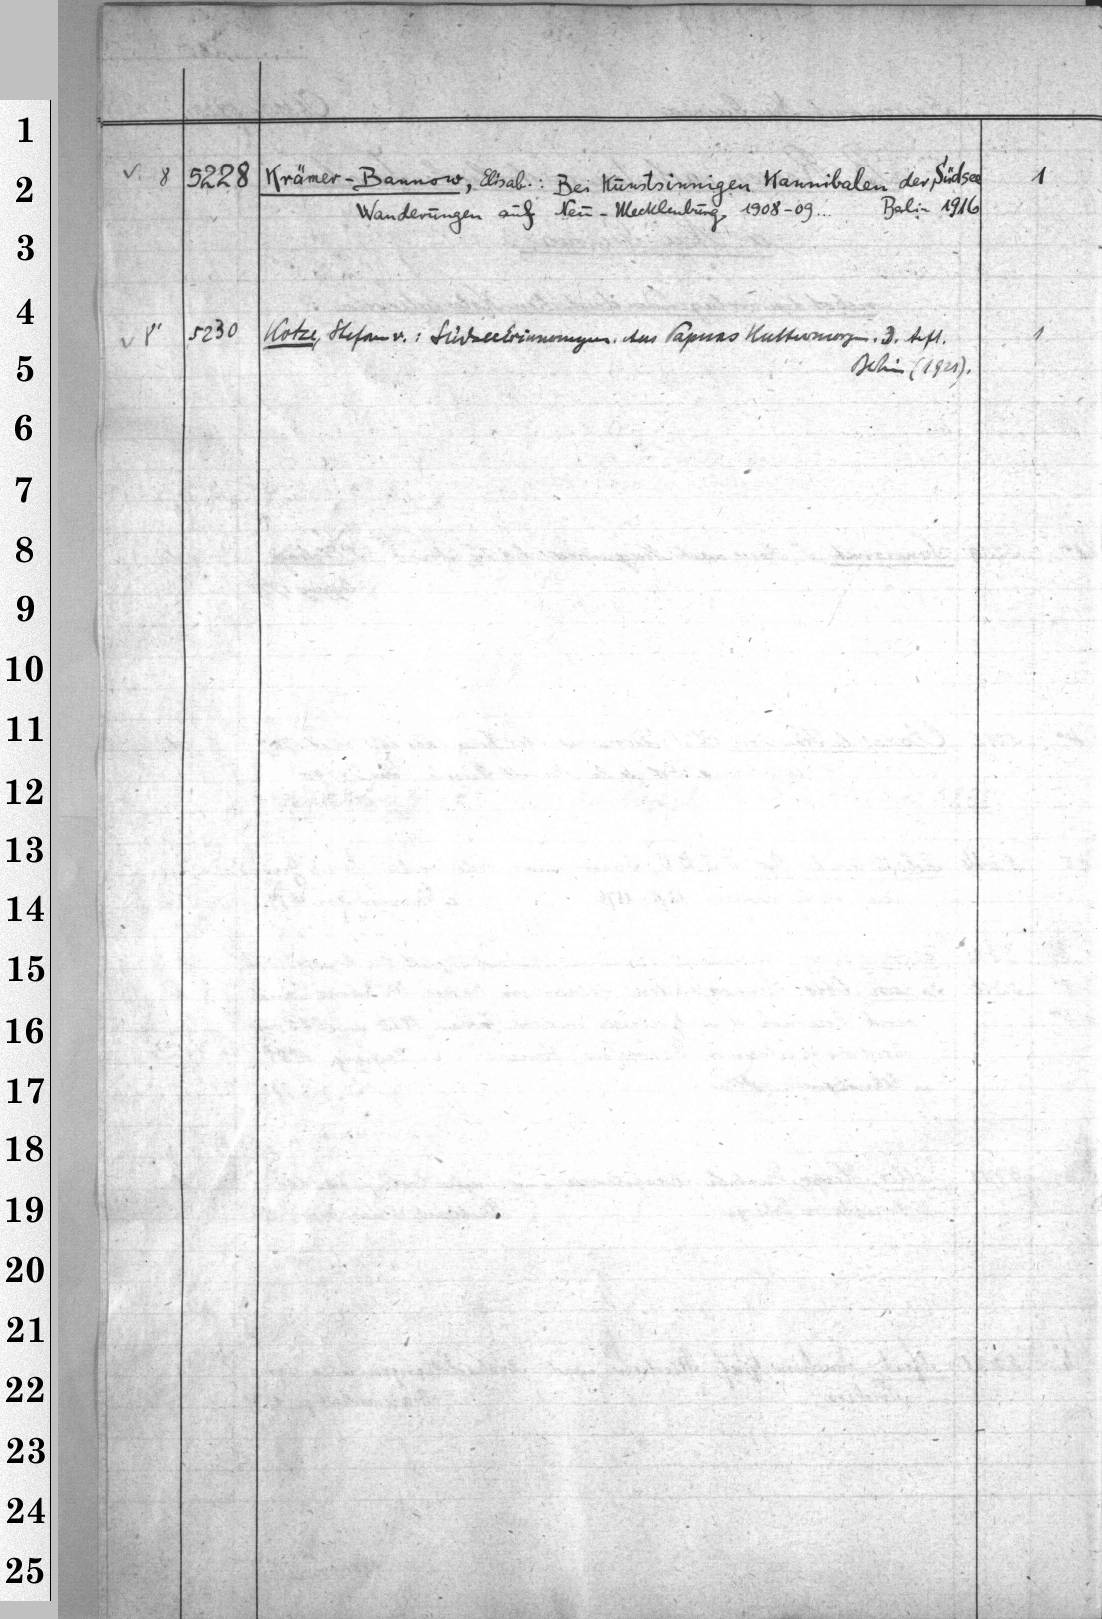 1
2
3
4
5
6
7
8
9
10
11
12
13
14
15
16
17
18
19
20
21
22
23
24
25
v. 8 5228 Krämer-Bannow, Elisab.: Bei Kunstsinnigen Kannibalen der Südsee 1
Wanderungen auf Neu-Mecklenburg, 1908-09... Berlin 1916
v 8° 5230 Kotze, Stefan v.: Südsee Erinnerungen. Aus Papuas Kulturmorgen. 3. Aufl. 1
Berlin (1921).